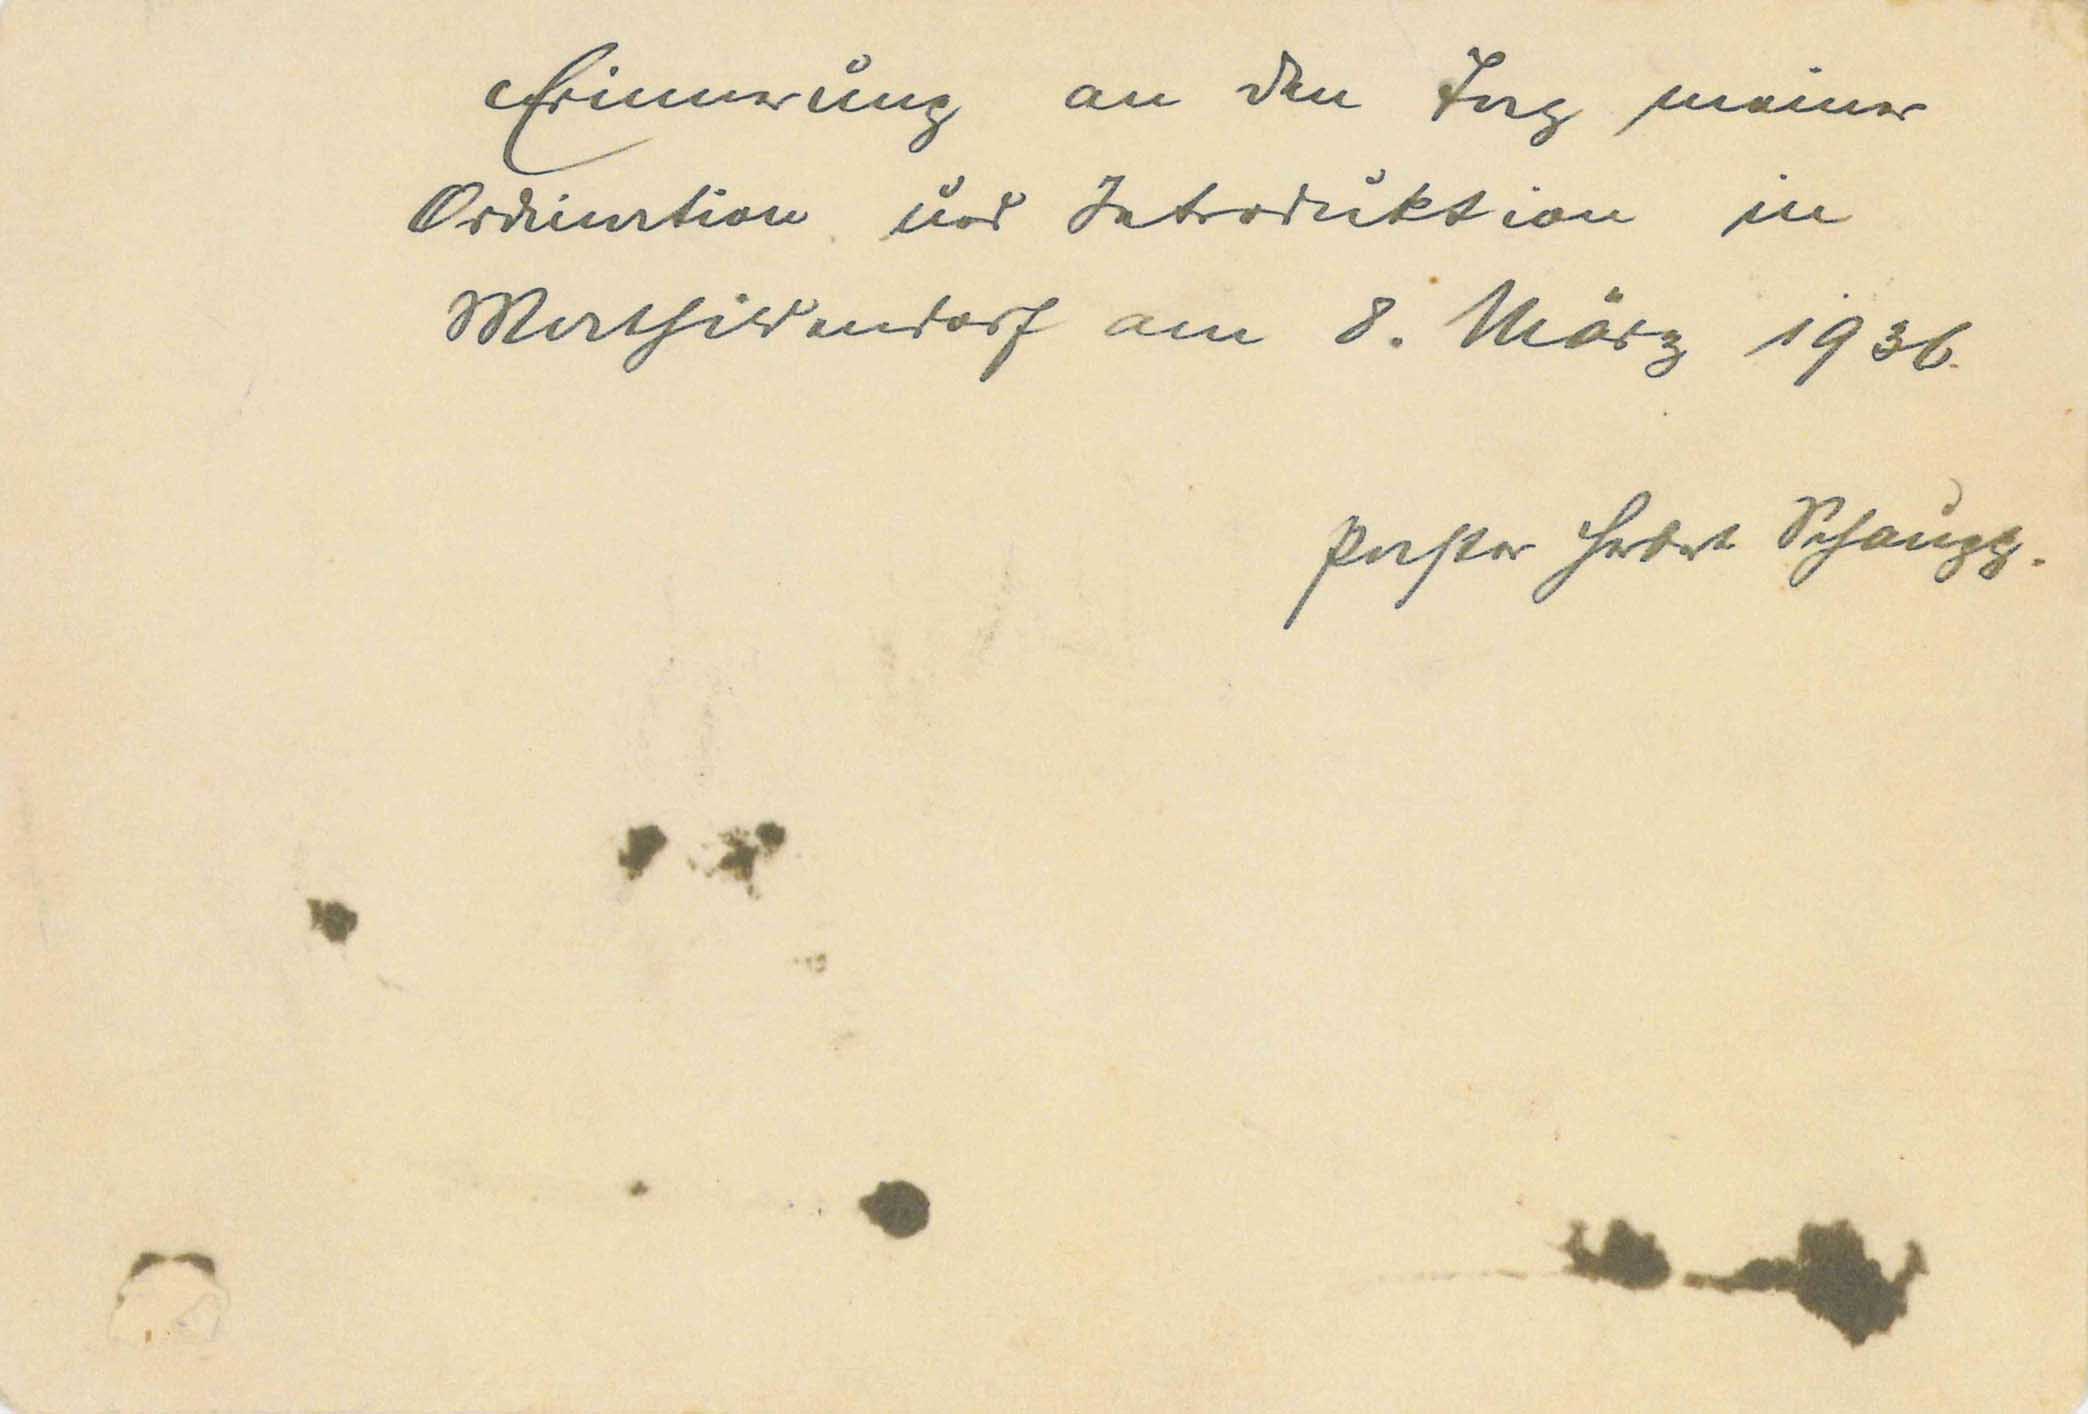 Erinnerung an den Tag meiner
Ordination und Introduktion in
Mathildendorf am 8. März 1936.
Pastor Herbert